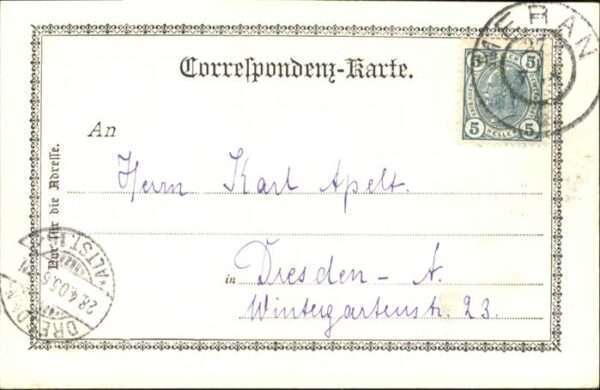 MERAN
Correſpondenz-Karte.
5 5
5 HELLER 5
An
Herrn Karl Apelt.
Nur für die Adreſſe.
in Dresden – A.
Wintergartenstr. 23.
ALTST. 1
28.4.03.
DRESDEN